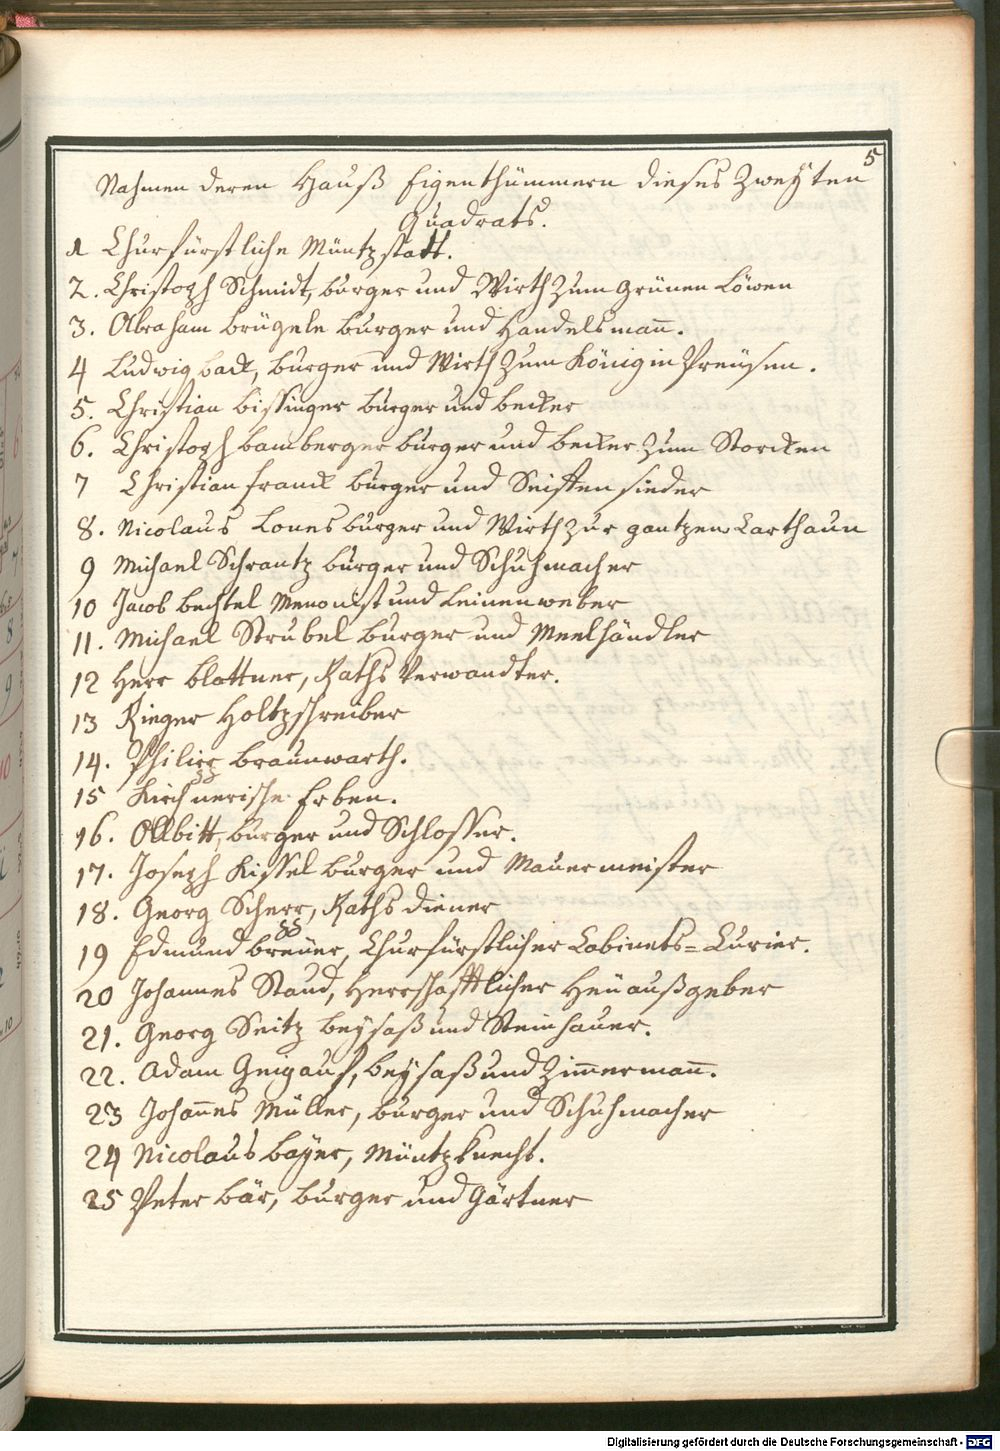 5
Nahmen deren Hauß Eigenthümmern dieses Zweyten
Quadrats.
1 Churfürstliche Müntzstatt.
2. Christoph Schmidt, burger und Wirth Zum Grünen Löwen
3. Abraham brügele burger und Handelsmañ.
4 Ludwig back, burger und Wirth Zum König in Preüsen.
5. Christian bissinger burger und becker
6. Christoph bamberger burger und becker Zum Storcken
7 Christian franck burger und Seiffensieder
8. Nicolaus Lones burger und Wirth Zur gantzen Carthaun
9 Michael Schrantz burger und Schuhmacher
10 Jacob bechtel Menonist und Leinenweber
11. Michael Strubel burger und Meelhändler
12 Herr blattner, Raths Verwandter.
13 Rieger Holtzschreiber
14. Philipp braunwarth.
15 Kirchnerische Erben.
16. Ollbitt, burger und Schlosser.
17. Joseph Kissel burger und Mauermeister
18. Georg Scherr, Raths diener
19 Edmund breüer, Churfürstlicher Cabinets=Curier.
20 Johannes Staud, Herrschafftlicher Heüaußgeber
21. Georg Seitz beysaß und Steinhauer.
22. Adam Geigauf, beysaß und Zim̃ermañ.
23 Johañes Müller, burger und Schuhmacher
24 Nicolaus bayer, Müntzknecht.
25 Peter bär, burger und Gärtner
Digitalisierung gefördert durch die Deutsche Forschungsgemeinschaft - DFG